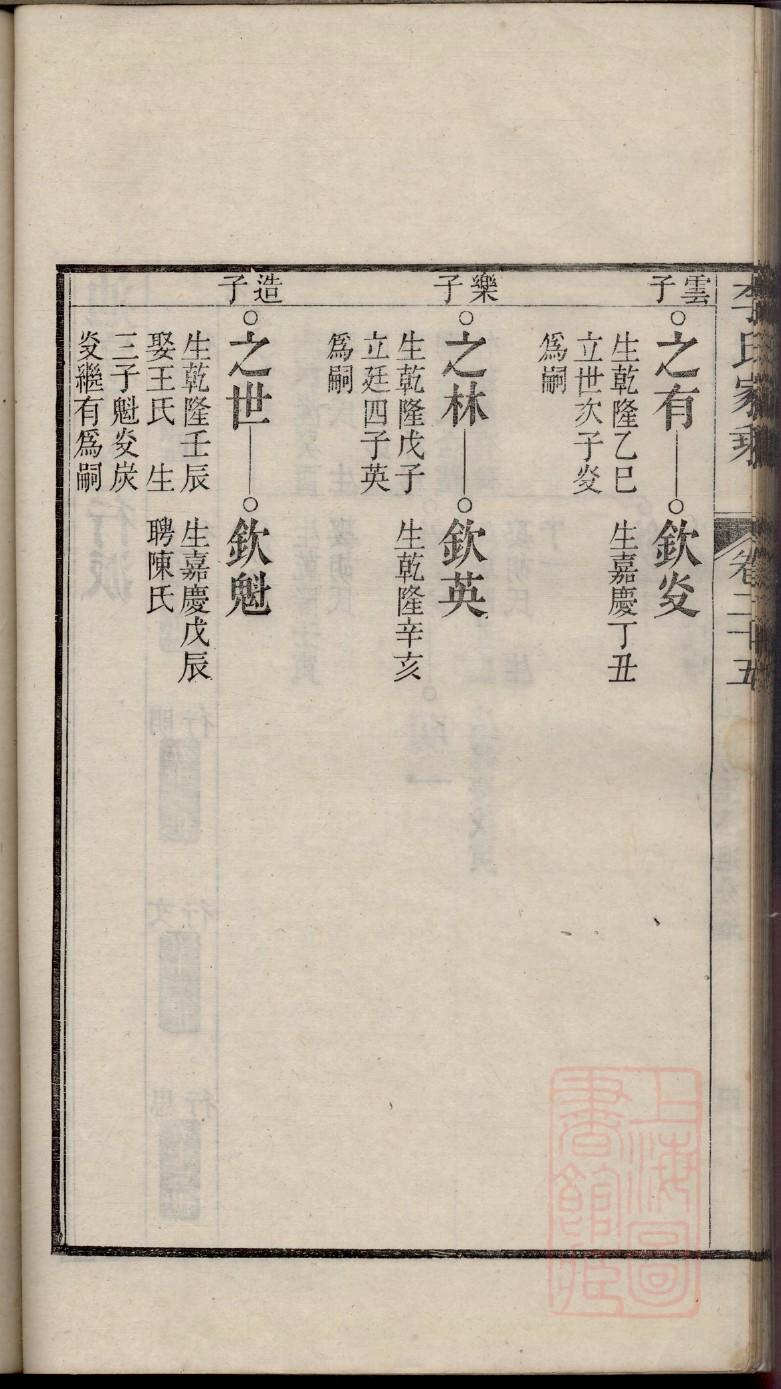 李氏家乘
卷二十五
雲子
之有
生乾隆乙巳
立世次子炎
為嗣
欽炎
生嘉慶丁丑
樂子
之林
生乾隆戊子
立廷四子英
為嗣
欽英
生乾隆辛亥
造子
之世
生乾隆壬辰
娶王氏 生
三子魁炎炭
炎繼有為嗣
欽魁
生嘉慶戊辰
聘陳氏
上海圖
書館藏